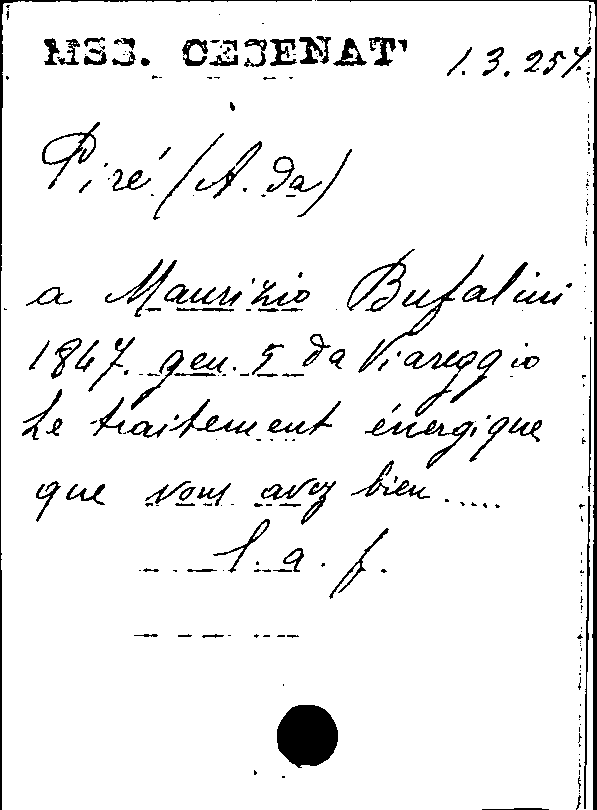 MSS. CESENAT' 1.3.257.
Piré (A. da)
a Maurizio Bufalini
1847. gen. 5 da Viareggio
Le traitement énergique
que vous avez bien.....
l. a. f.